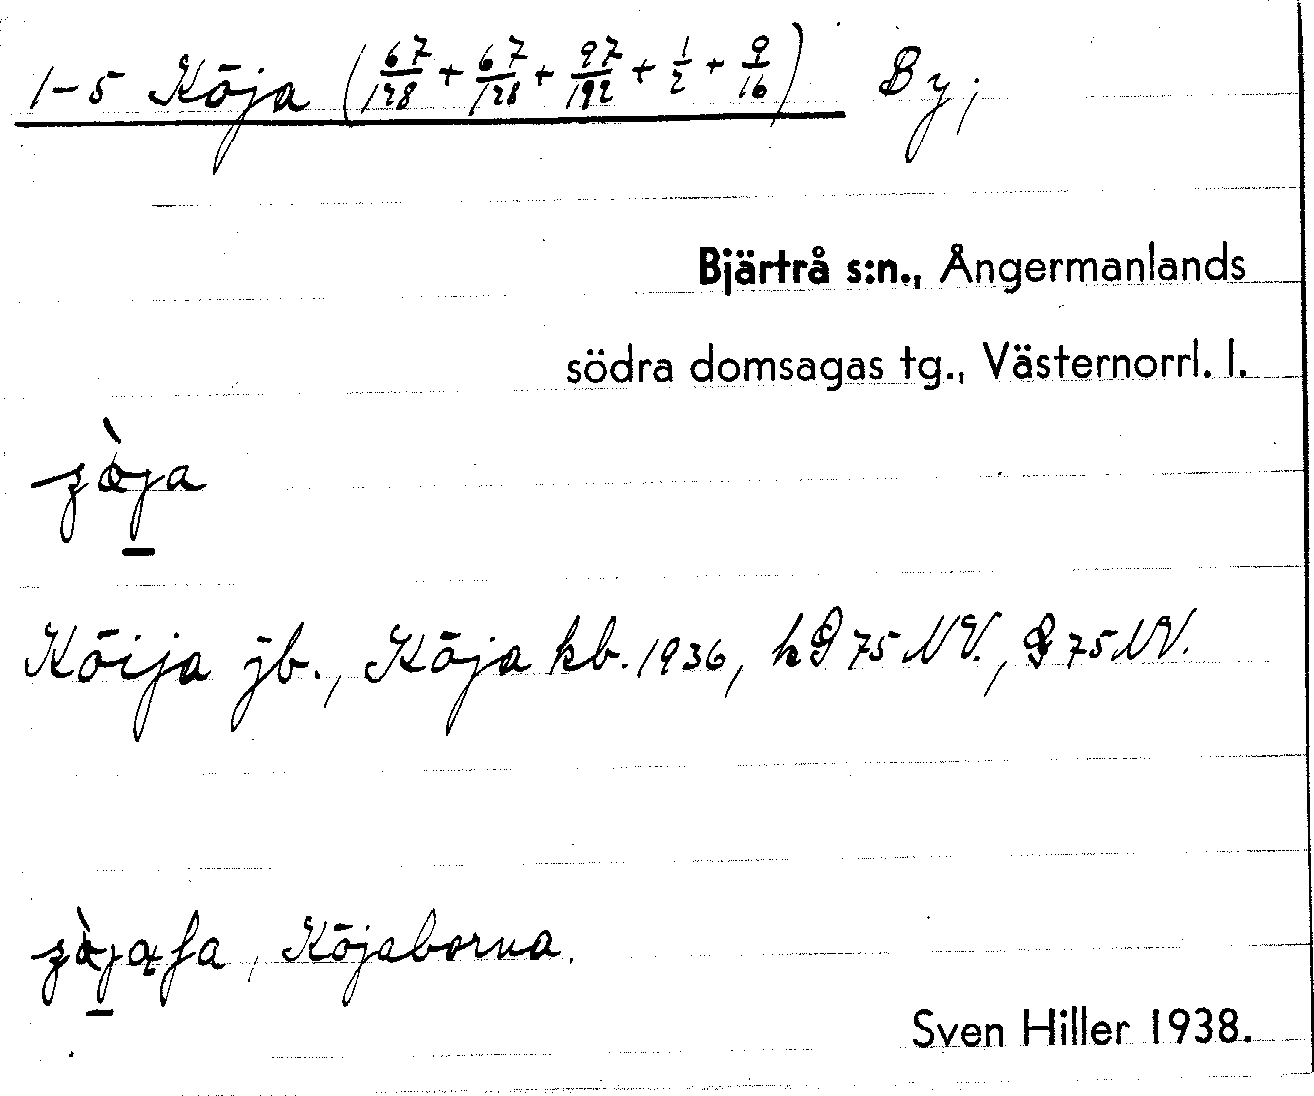 1-5 Köja (67/128 + 67/128 + 97/192 + 1/2 + 9/16) By;
Bjärtrå s:n., Ångermanlands
södra domsagas tg., Västernorrl. l.
Köija jb., Köja kb. 1936, 75 NV., 75 NV.
Köjaborna.
Sven Hiller 1938.